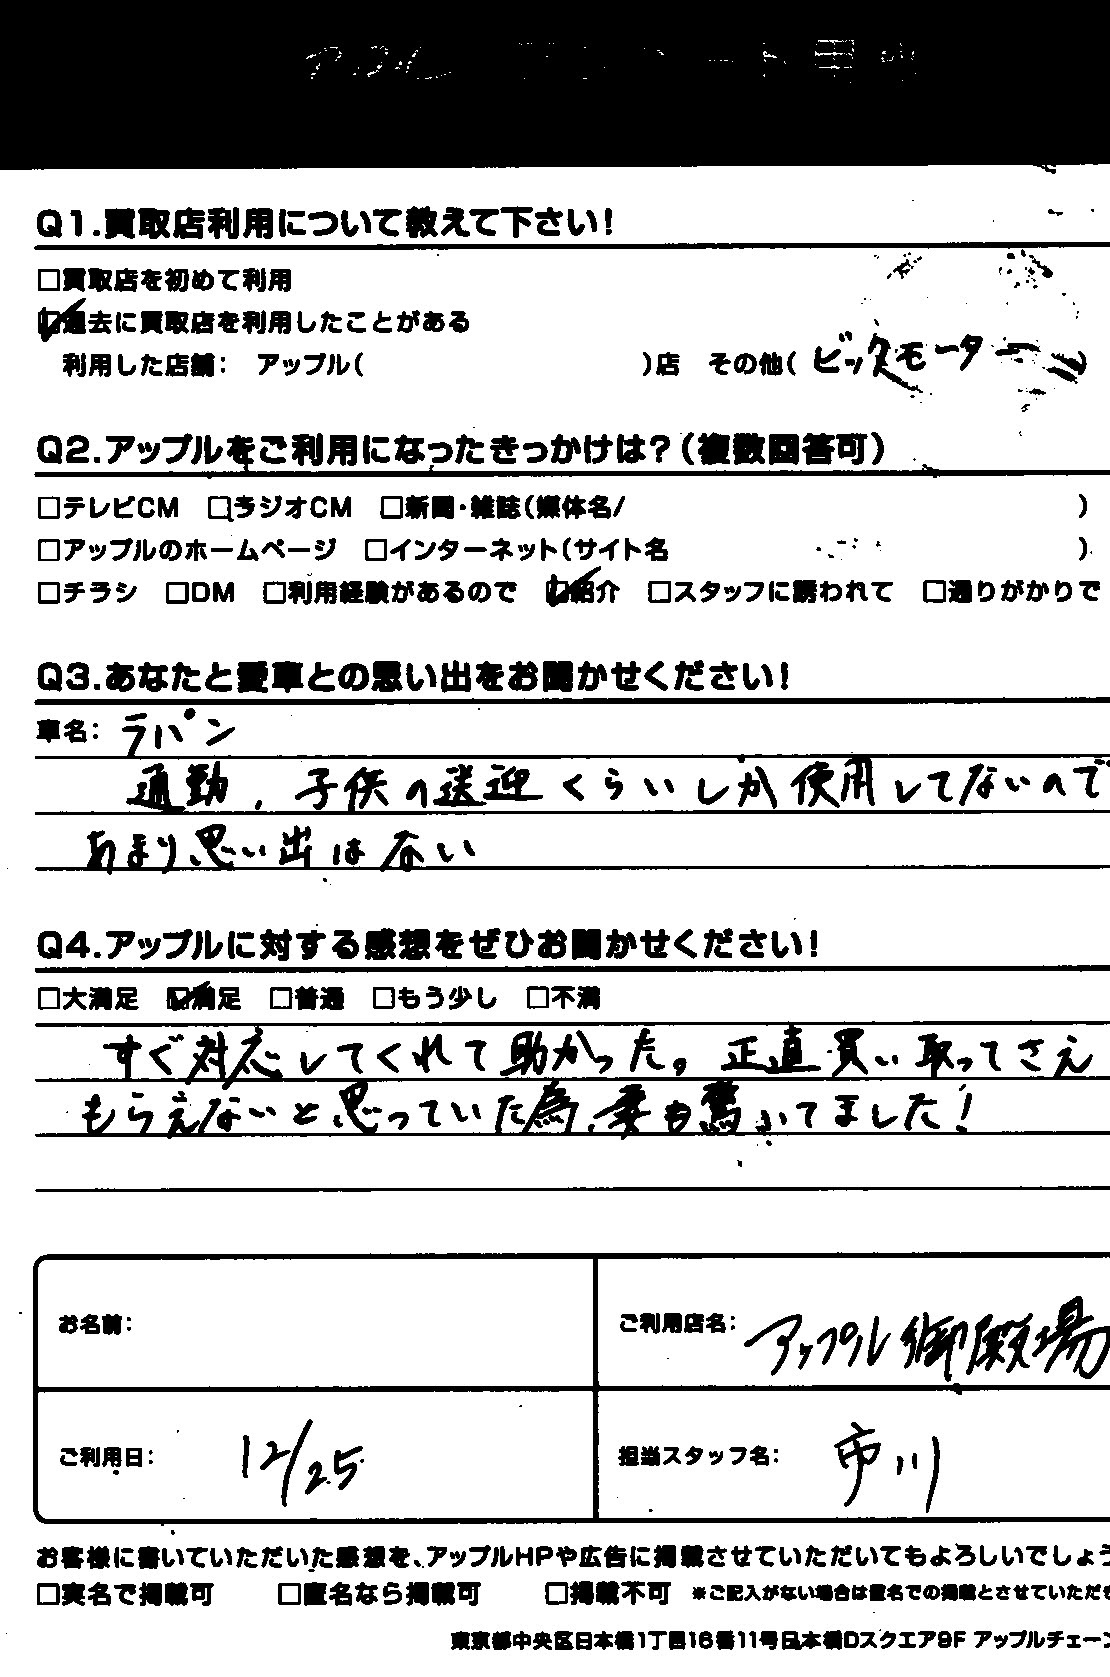 Q1.買取店利用について教えて下さい!
□買取店を初めて利用
☑過去に買取店を利用したことがある
利用した店舗: アップル( )店 その他( ビックモーター )
Q2.アップルをご利用になったきっかけは?(複数回答可)
□テレビCM □ラジオCM □新聞・雑誌(媒体名/ )
□アップルのホームページ □インターネット(サイト名 )
□チラシ □DM □利用経験があるので ☑紹介 □スタッフに誘われて □通りがかりで
Q3.あなたと愛車との思い出をお聞かせください!
車名: ラパン
通勤、子供の送迎くらいしか使用してないので
あまり思い出はない
Q4.アップルに対する感想をぜひお聞かせください!
□大満足 ☑満足 □普通 □もう少し □不満
すぐ対応してくれて助かった。正直買い取ってさえ
もらえないと思っていた為、妻も驚いてました!
お名前:
ご利用店名: アップル御殿場
ご利用日: 12/25
担当スタッフ名: 市川
お客様に書いていただいた感想を、アップルHPや広告に掲載させていただいてもよろしいでしょう
□実名で掲載可 □匿名なら掲載可 □掲載不可 ※ご記入がない場合は匿名での掲載とさせていただき
東京都中央区日本橋1丁目16番11号日本橋Dスクエア9F アップルチェーン